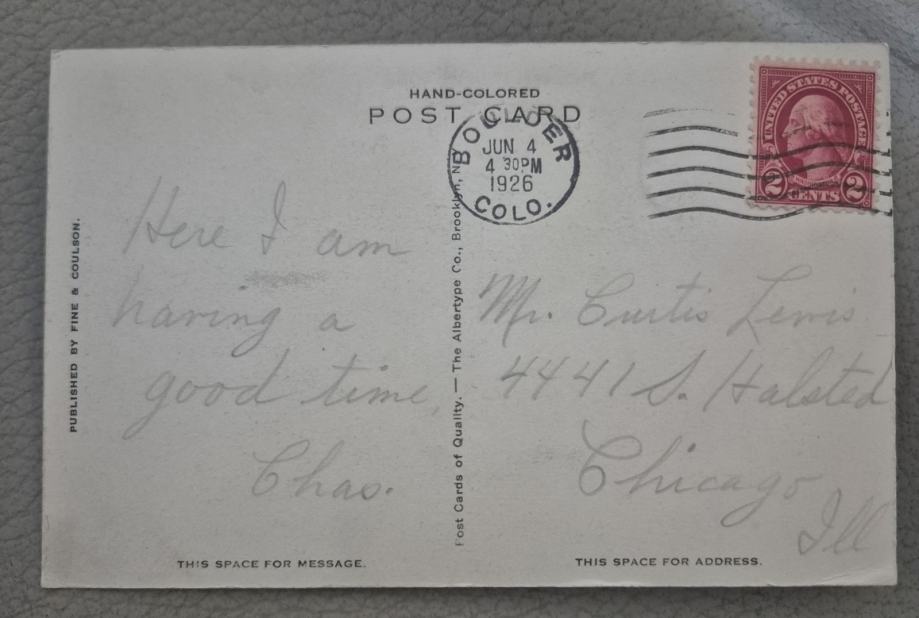 HAND-COLORED
POST CARD
BOULDER
JUN 4
4 30PM
1926
COLO.
UNITED STATES POSTAGE
2 CENTS 2
PUBLISHED BY FINE & COULSON.
Here I am
having a
good time,
Chas.
THIS SPACE FOR MESSAGE.
Post Cards of Quality. — The Albertype Co., Brooklyn, N.
Mr. Curtis Lewis
4441 S. Halsted
Chicago
Ill
THIS SPACE FOR ADDRESS.